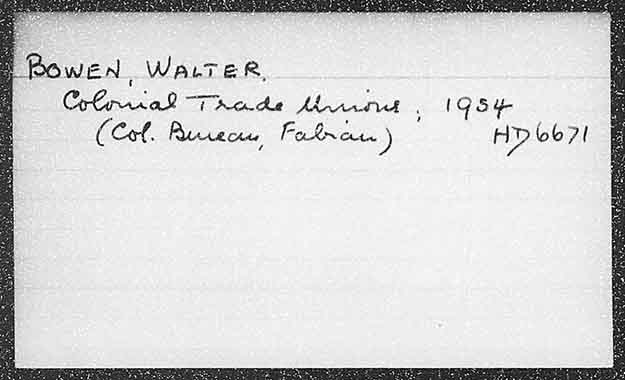 BOWEN, WALTER.
Colonial Trade Unions; 1954
(Col. Bureau, Fabian) HD6671